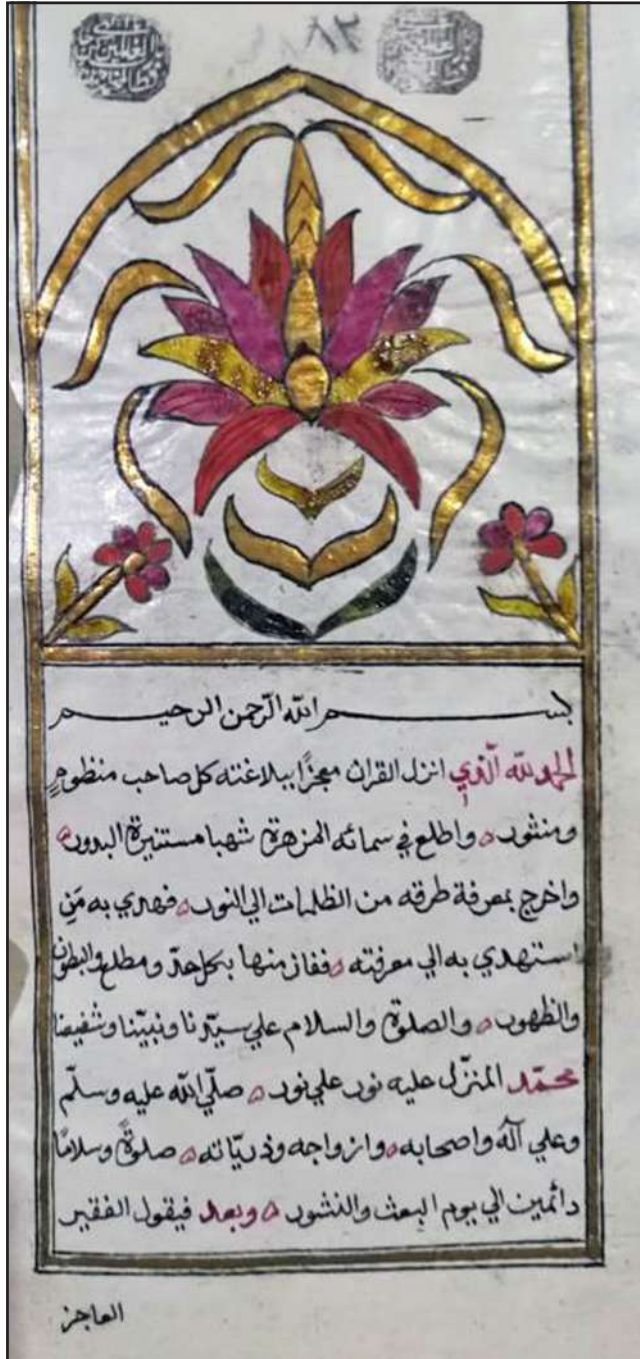 ٨٢
بسم الله الرّحمن الرحيم
الحمد لله الّذي انزل القران معجزًا ببلاغته كل صاحب منظومٍ
ومنثور واطلع في سمائه المزهرة شهبا مستنيرة البدور
واخرج بمعرفة طرقه من الظلمات الي النور فهدي به مَنِ
استهدي به الي معرفته ففاز منها بكل حدّ ومطلع والبطون
والظهور والصلوة والسلام علي سيّدنا ونبيّنا وشفيعنا
محمّد المنزّل عليه نور علي نور صلّي الله عليه وسلّم
وعلي آله واصحابه وازواجه وذريّاته صلوةً وسلامًا
دائمين الي يوم البعث والنشور وبعد فيقول الفقير
العاجز